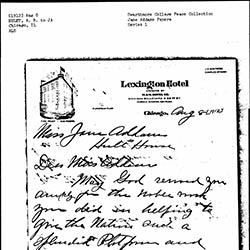 (1912) Aug 8
Swarthmore College Peace Collection
Jane Addams Papers
Chicago, IL
Series 1
ALS
Lexington Hotel
Chicago, Aug
Miss Jane Addams
Hull House
Dear Miss Addams
May God reward you
for the noble work
you did in helping to
give the Nation such a
splendid Platform and